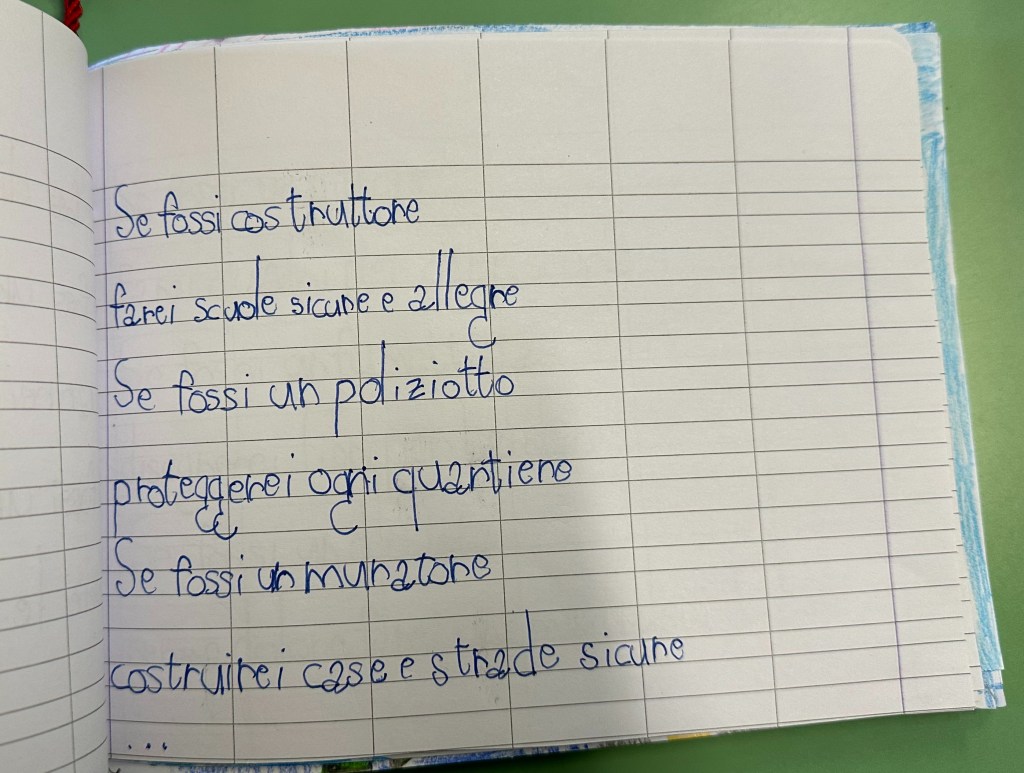 Se fossi costruttore
farei scuole sicure e allegre
Se fossi un poliziotto
proteggerei ogni quartiere
Se fossi un muratore
costruirei case e strade sicure
...